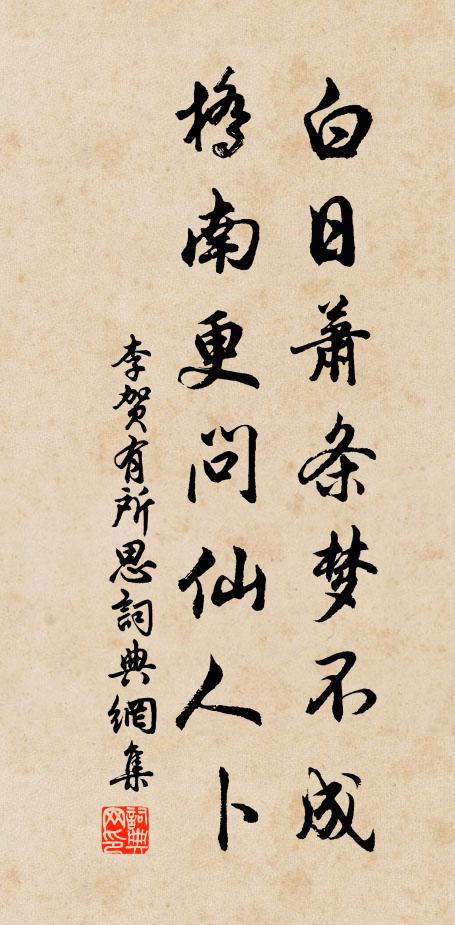 白日萧条梦不成
桥南更问仙人卜
李贺有所思詞典網集
詞典网印